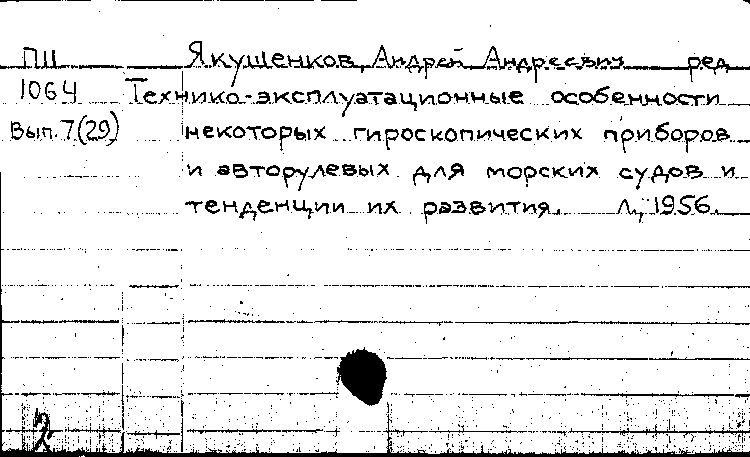 ПII Якушенков, Андрей Андреевич ред
1064 Технико-эксплуатационные особенности
Вып. 7(29) некоторых гироскопических приборов
и авторулевых для морских судов и
тенденции их развития. Л., 1956.